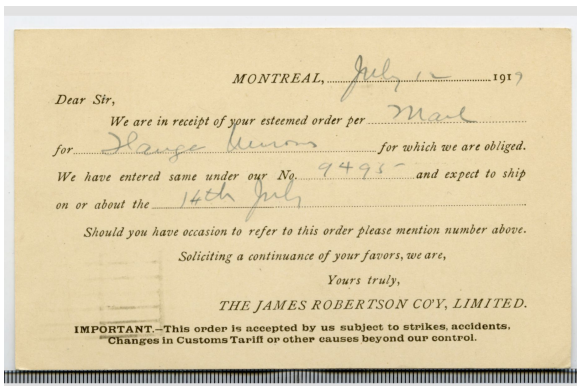 MONTREAL, July 12 1919
Dear Sir,
We are in receipt of your esteemed order per Mail
for Flange Unions for which we are obliged.
We have entered same under our No. 9495 and expect to ship
on or about the 14th July
Should you have occasion to refer to this order please mention number above.
Soliciting a continuance of your favors, we are,
Yours truly,
THE JAMES ROBERTSON CO'Y, LIMITED.
IMPORTANT.—This order is accepted by us subject to strikes, accidents,
Changes in Customs Tariff or other causes beyond our control.